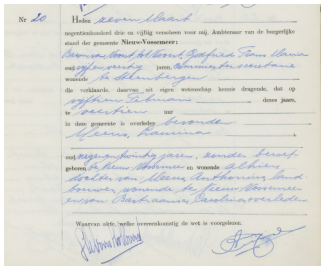 Nr 20
Heden zeven Maart
negentienhonderd drie en vijftig verscheen voor mij, Ambtenaar van de burgerlijke
stand der gemeente Nieuw-Vossemeer:
oud vijfenveertig jaren,
wonende te Steenbergen
die verklaarde, daarvan uit eigen wetenschap kennis dragende, dat op
vijftien Februari dezes jaars,
te veertien uur
in deze gemeente is overleden bevonden
Meeus, Laurina
oud negenentwintig jaren, zonder beroep
geboren te Nieuw Vossemeer en wonende alhier
dochter van Meeus, Anthonius, land
bouwer, wonende te Nieuw Vossemeer
en van Bastiaansen, Carolina, overleden
Waarvan akte, welke overeenkomstig de wet is voorgelezen.